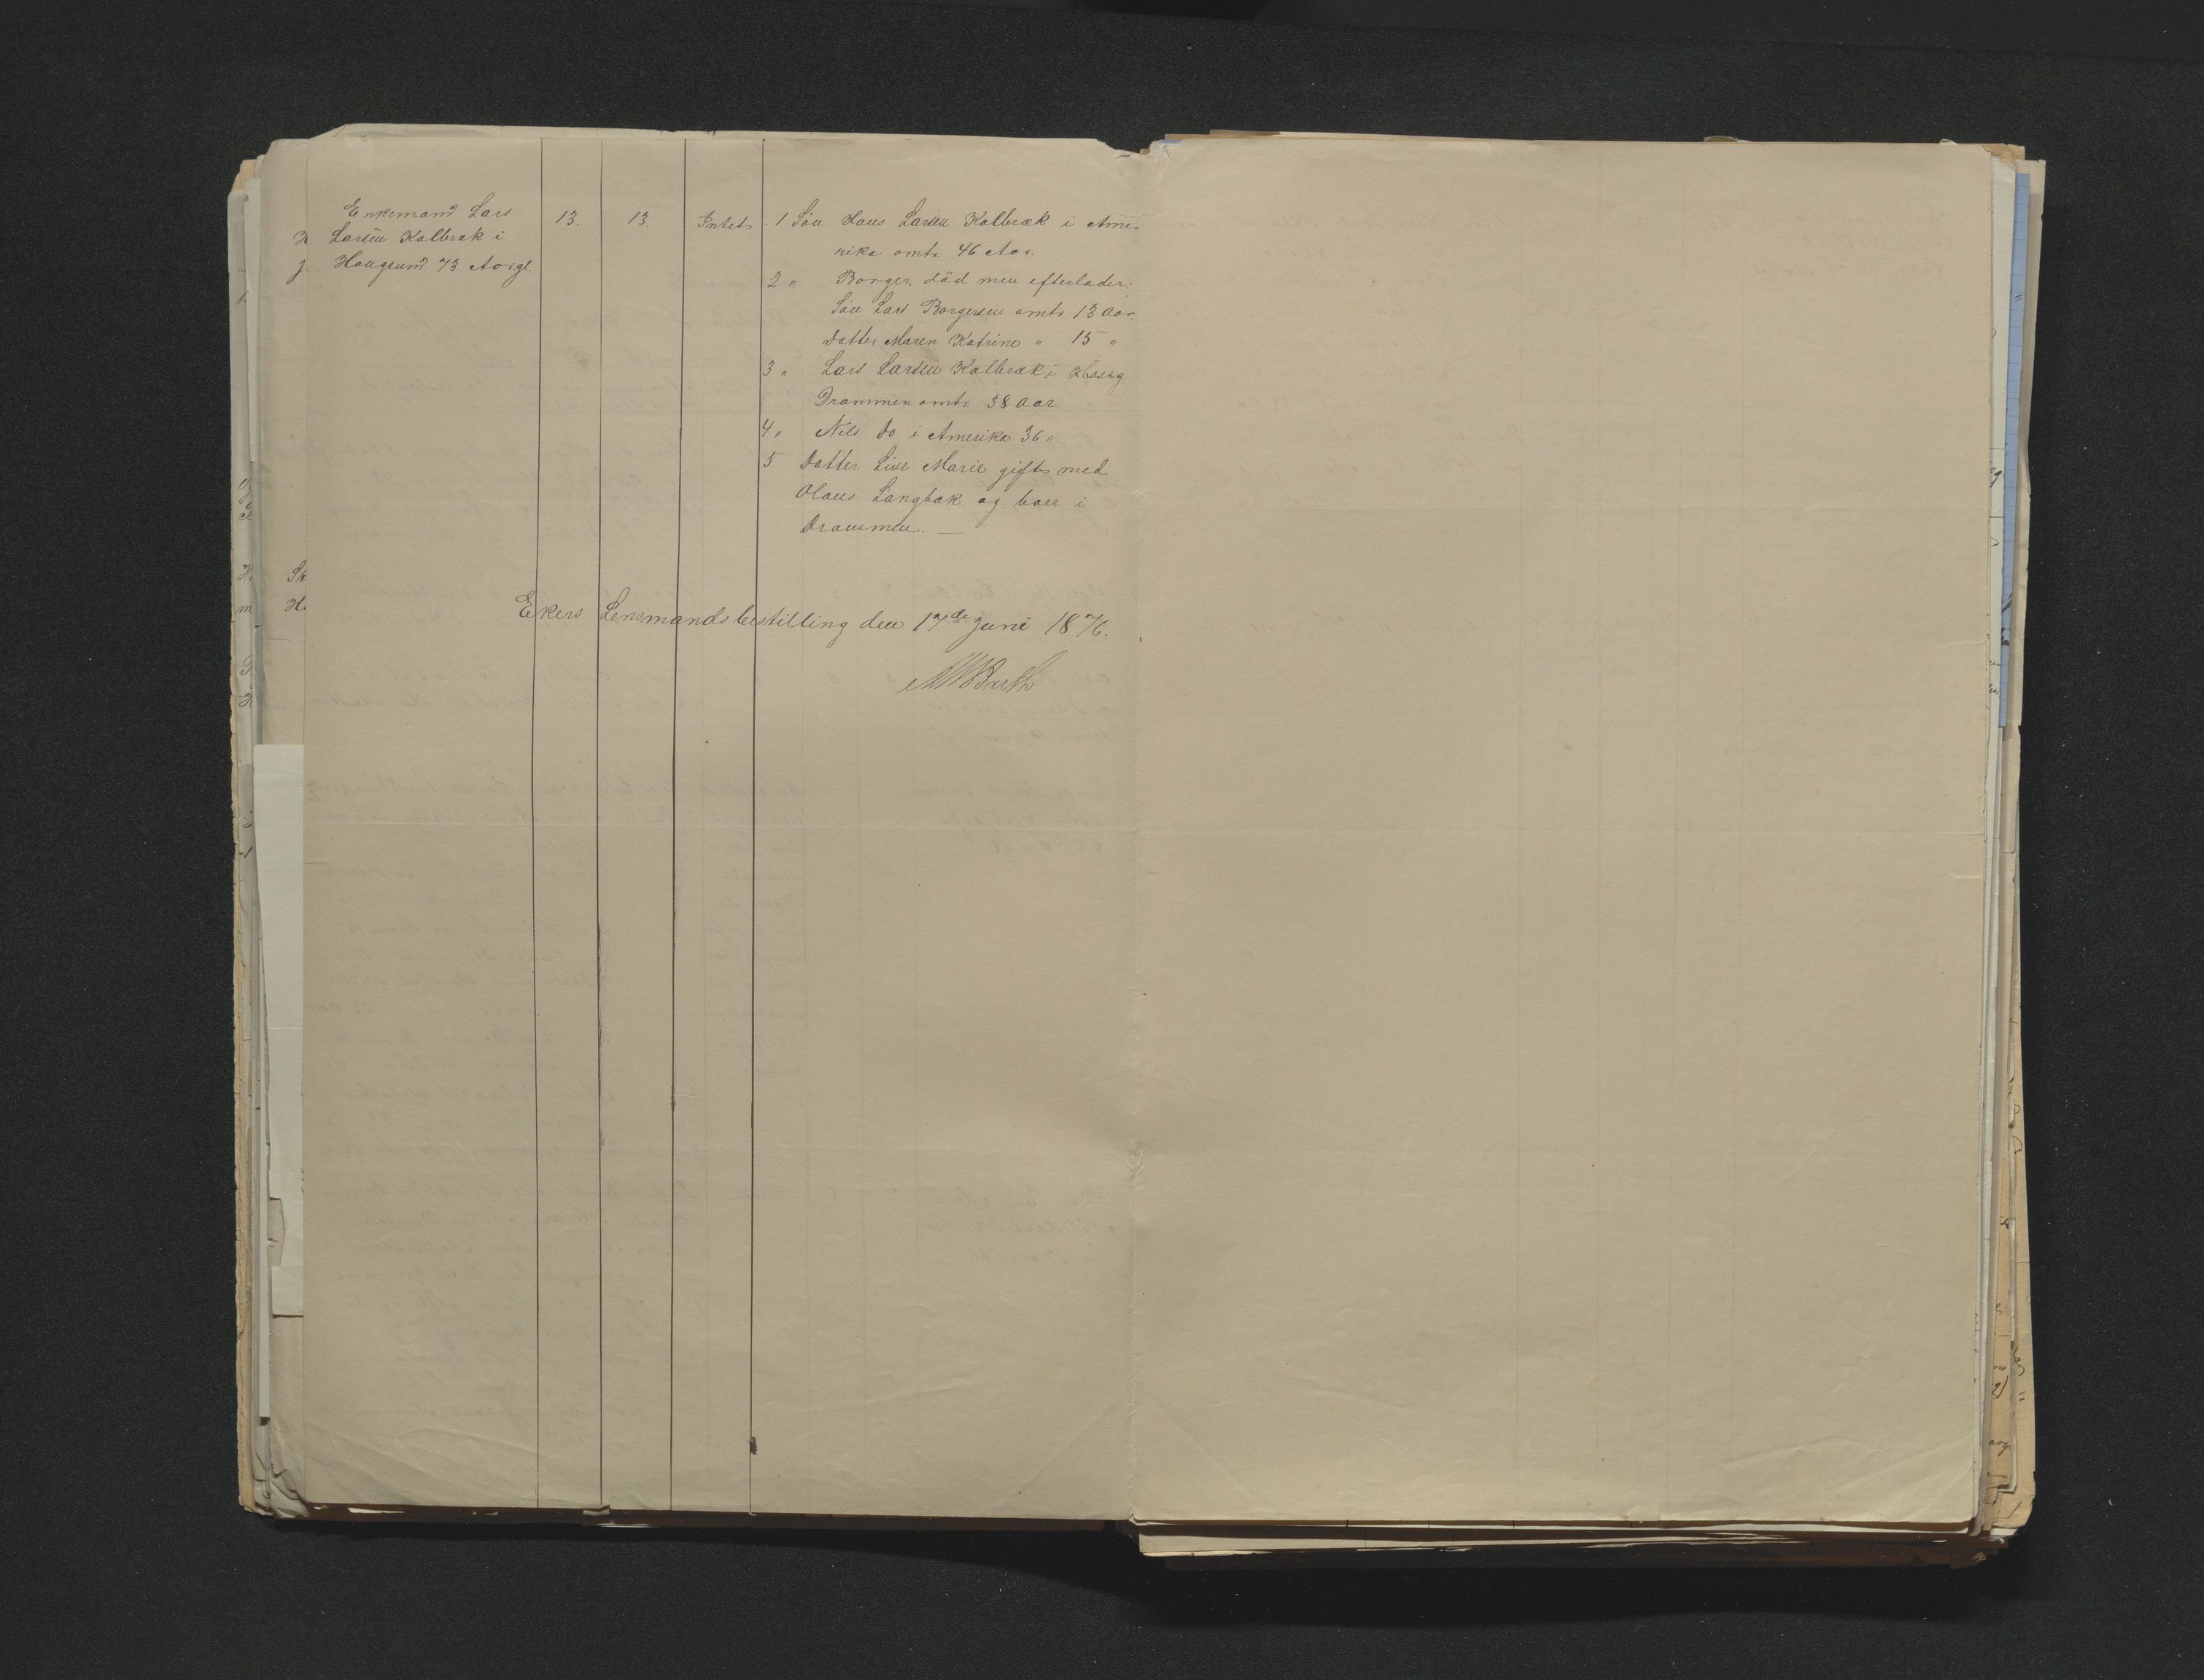 Enkemand Lars
Larsen Kolbræk i
Hougsund 73 Aar gl.
13. 13. Intet.
1 Søn Hans Larsen Kolbræk i Ame-
rika omtr. 46 Aar.
2 " Borger, död men efterlader:
Søn Lars Borgersen omtr 13 Aar.
Datter Maren Katrine " 15 "
3 " Lars Larsen Kolbræk i
Drammen omtr. 38 Aar.
4 " Nils Do i Amerika 36 "
5 Datter Live Marie gift med
Olaus Langbak og boer i
Drammen. —
Ekers Lensmandsbestilling den 17de Juni 1876.
Barth